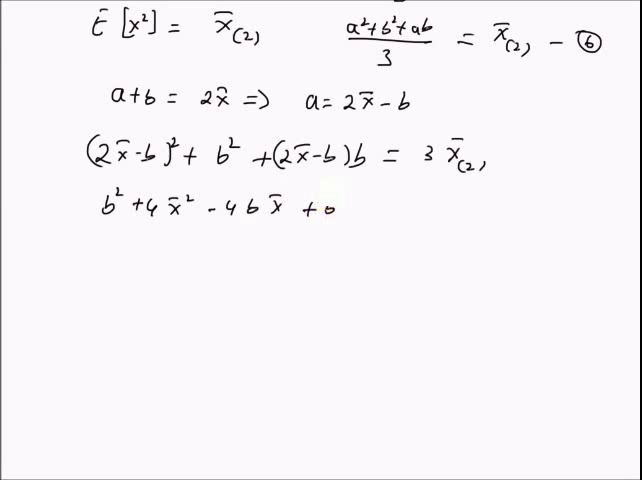 E[x²] = x̄₍₂₎ (a²+b²+ab)/3 = x̄₍₂₎ – ⑥
a+b = 2x̄ => a = 2x̄ - b
(2x̄-b)² + b² + (2x̄-b)b = 3 x̄₍₂₎
b² + 4x̄² - 4bx̄ +